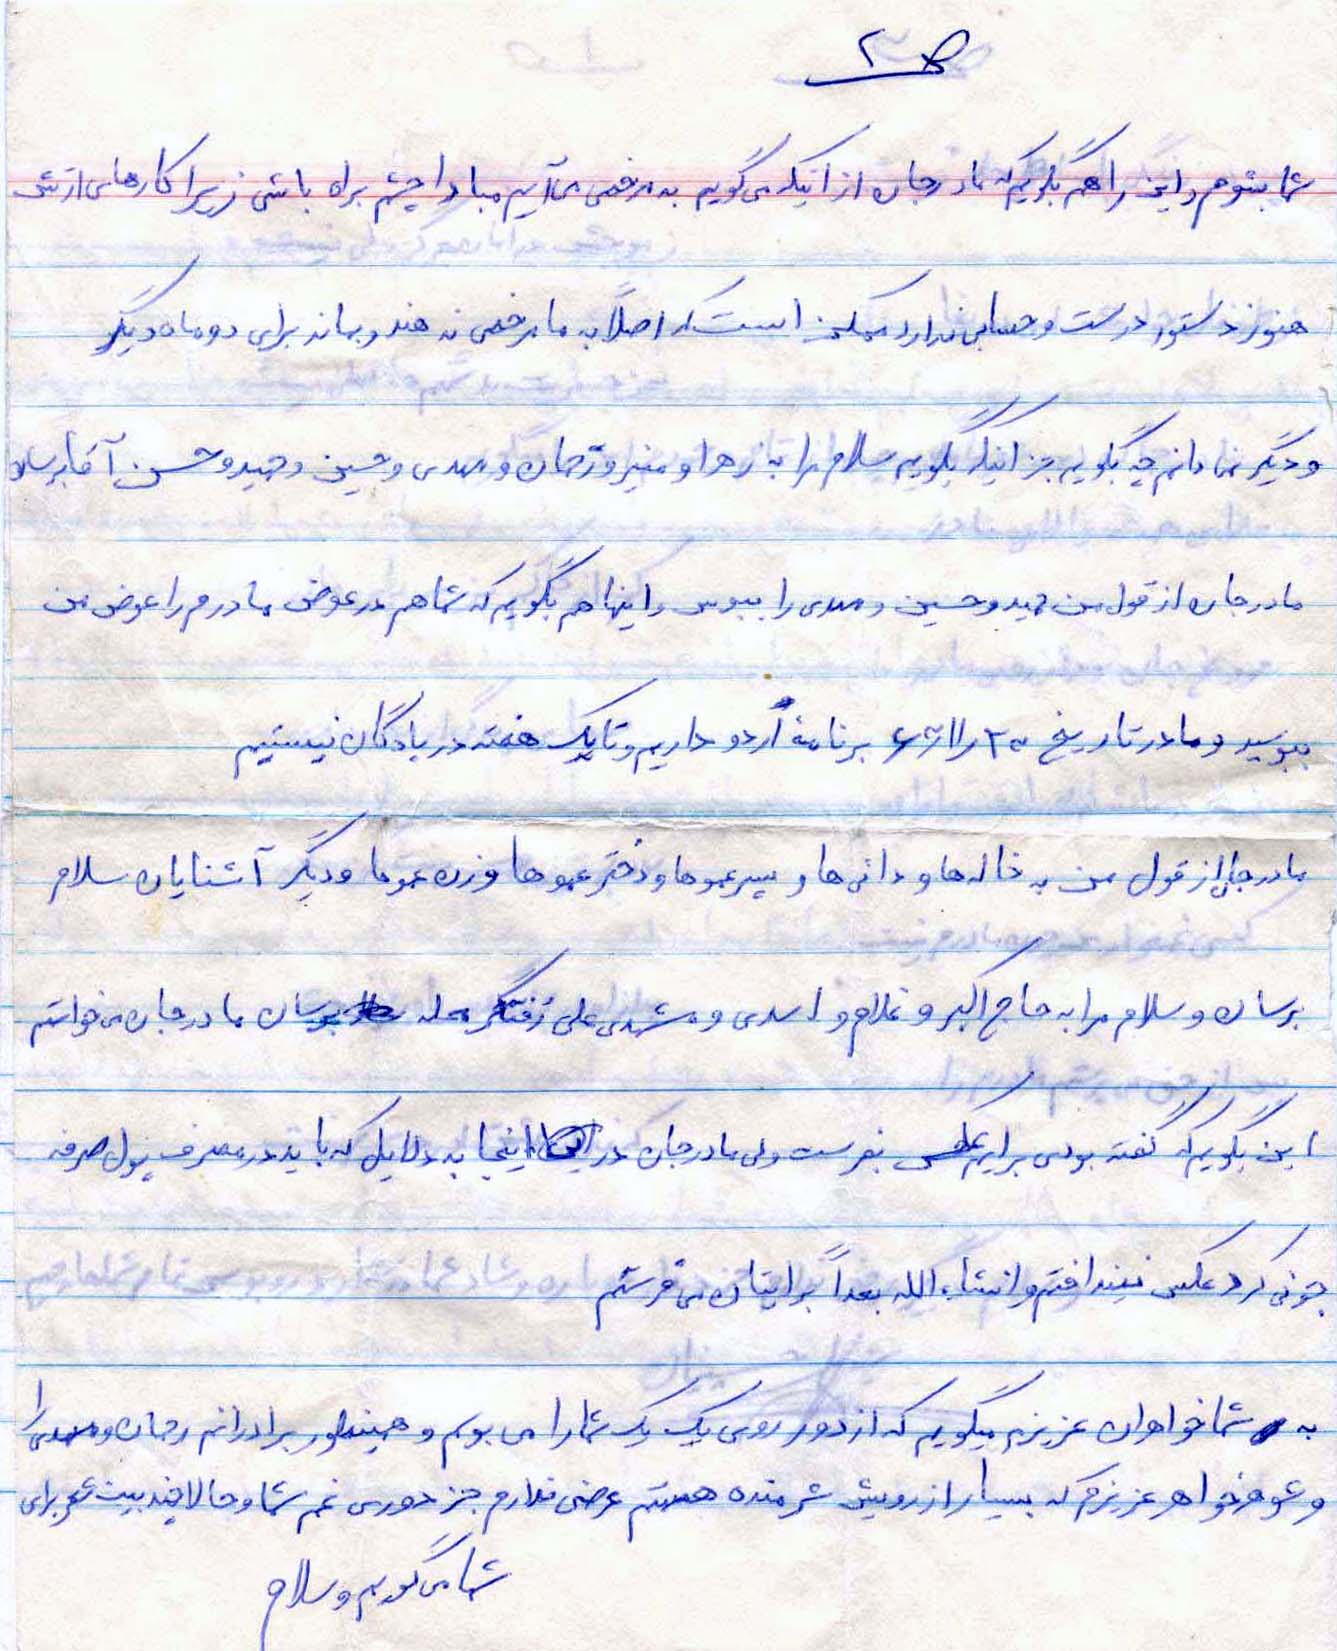 ص ۲
شما بشوم و این را هم بگویم که مادر جان از اینکه می گویم به مرخصی می آیم مبادا چشم براه باشی زیرا کارهای ارتش
هنوز دستور درست و حسابی ندارد ممکن است که اصلاً به ما مرخصی ندهند و بماند برای دو ماه دیگر
و دیگر نمی دانم چه بگویم جز اینکه بگویم سلام مرا به زهرا و منیر و رحمان و مهدی و حسین و حمید و حسن آقا برسان
مادر جان از قول من حمید و حسین و مهدی را ببوس و اینها هم بگویم که شما هم در عوض مادرم را عوض من
ببوسید و ما در تاریخ برنامهٔ اردو داریم و تا یک هفته در پادگان نیستیم
مادر جان از قول من به خاله ها و دائی ها و پسر عموها و دختر عموها و زن عموها و دیگر آشنایان سلام
برسان و سلام مرا به حاج اکبر و غلام و اسدی و مشهدی علی رفتگر محله برسان مادر جان می خواستم
این بگویم که گفته بودی برایم عکس بفرست ولی مادر جان در اینجا به دلایل که باید در مصرف پول صرفه
جوئی کرد عکس نینداختم و انشاء الله بعداً برایتان می فرستم
به شما خواهران عزیزم میگویم که از دور روی یک یک شما را می بوسم و همینطور برادرانم رحمان و مهدی را
و شوهر خواهر عزیزم که بسیار از رویش شرمنده هستم عرضی ندارم جز دوری غم شما و حالا چند بیت شعر برای
شما می گویم و سلام